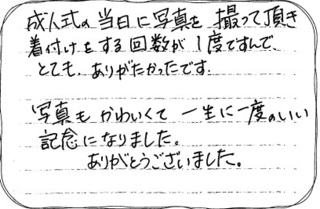 成人式の当日に写真を撮って頂き
着付けをする回数が1度ですんで、
とても、ありがたかったです。
写真もかわいくて一生に一度のいい
記念になりました。
ありがとうございました。